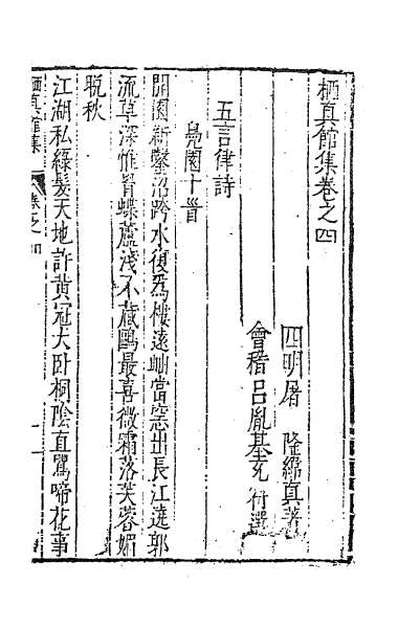 栖真館集卷之四
四明屠　隆緯真著
會稽呂胤基　父校選
五言律詩
鳧園十首
開園新鑿沼跨水復爲樓遠岫當窓出長江遶郭
流草深惟冐蝶蘆淺不藏鷗最喜微霜落芙蓉媚
晚秋
江湖私綠髮天地許黃冠犬臥桐陰直鶯啼花事
栖真館集　卷之四　一